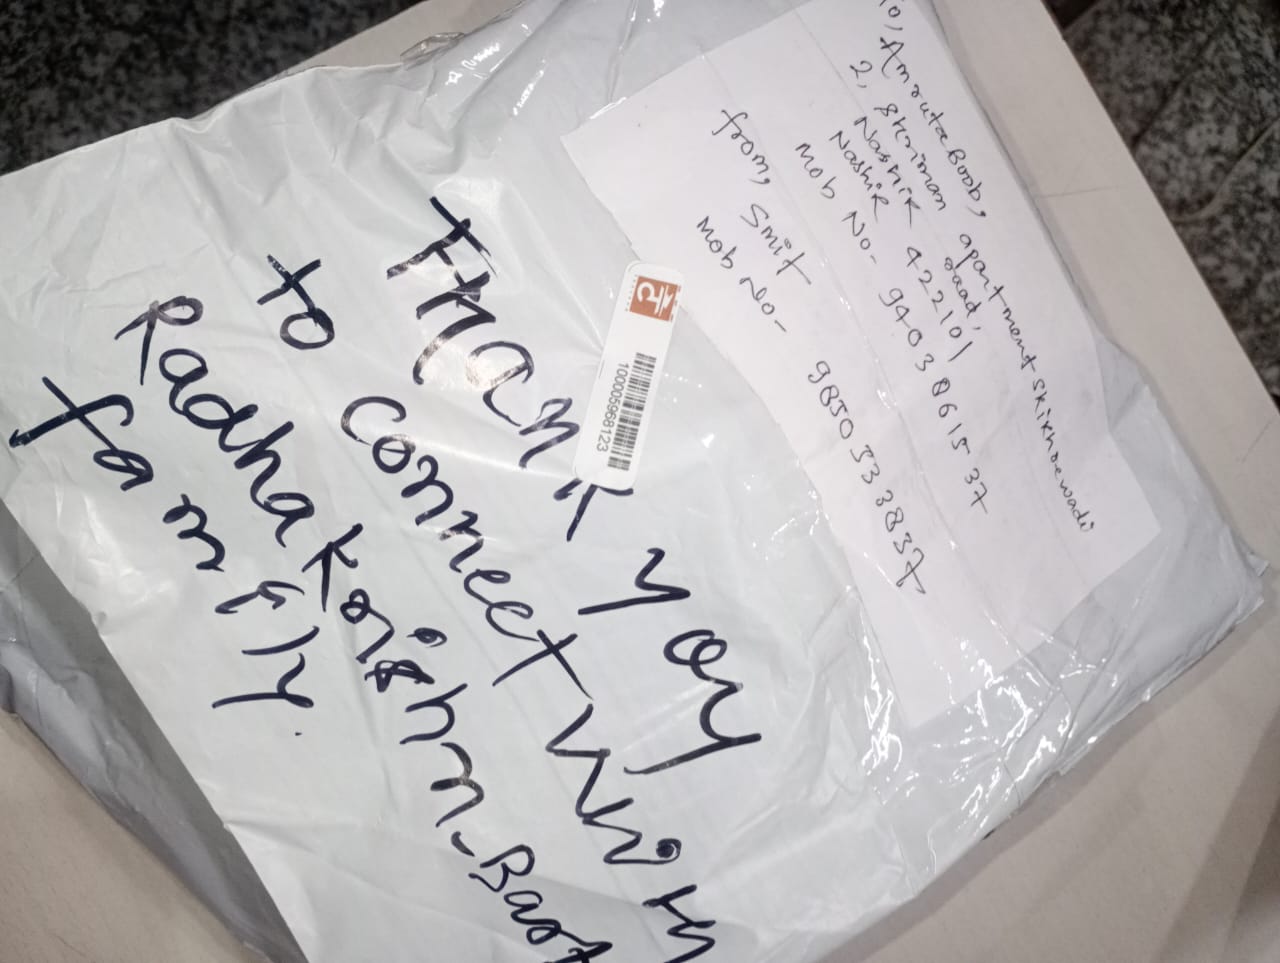 To, Amruta Boob,
2, Shriman apartment skihrewadi
Nashik road,
Nashik 422101
Mob No- 9403 061537
from, Smit
Mob No- 9850333837
100005968123
THank you
to connect with
Radha Krishna_Bast
family.